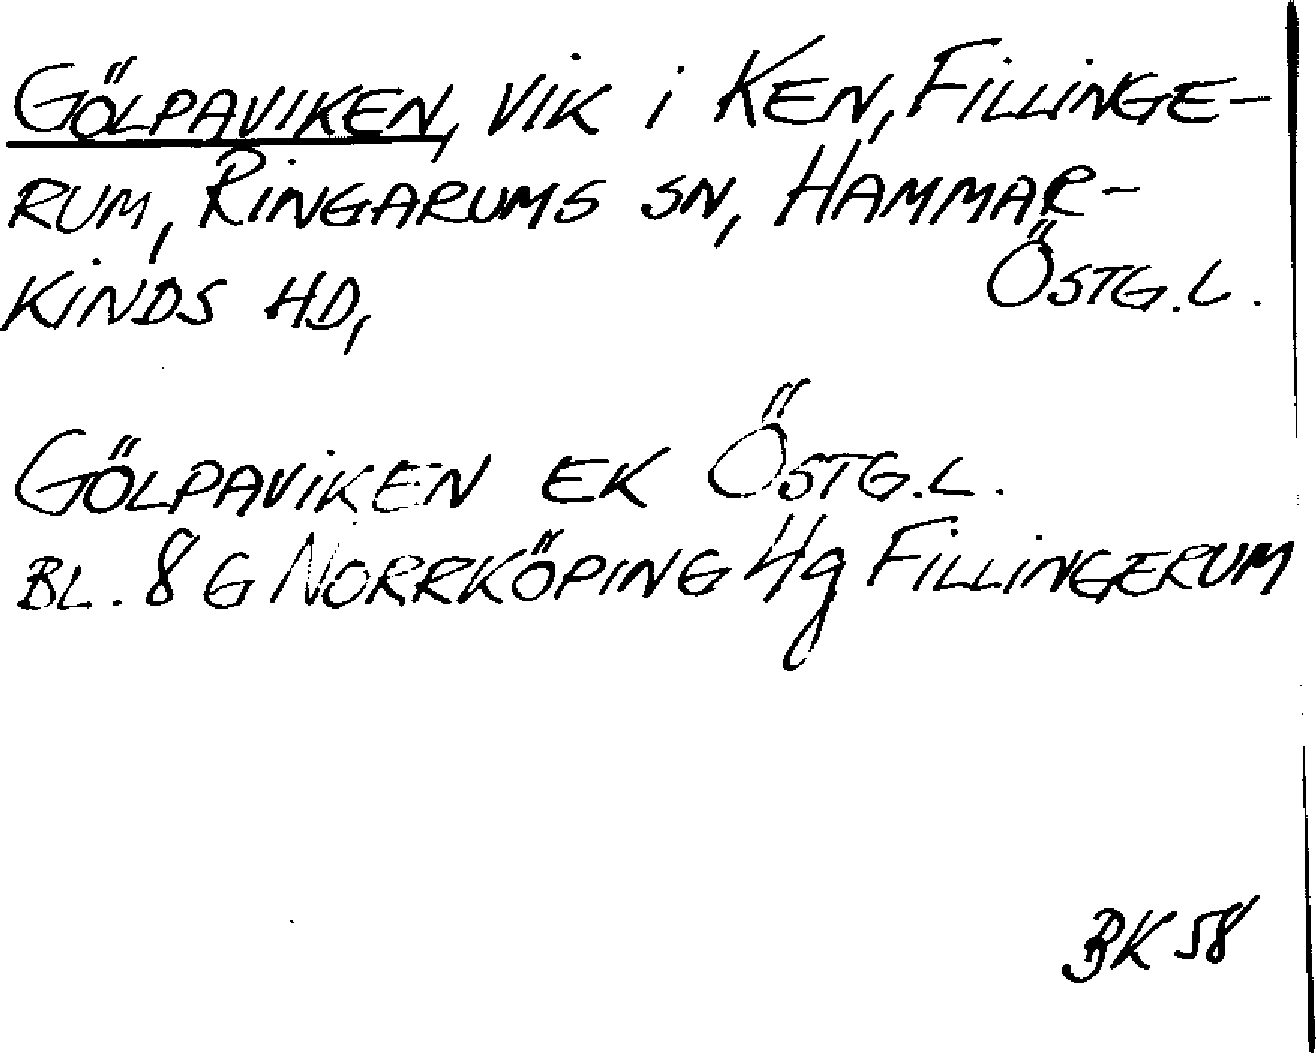 GÖLPAVIKEN, VIK i KEN, FILLINGE-
RUM, RINGARUMS SN, HAMMAR-
KINDS HD, ÖSTG.L.
GÖLPAVIKEN EK ÖSTG.L.
BL. 8 G NORRKÖPING 4g FILLINGERUM
BK 58